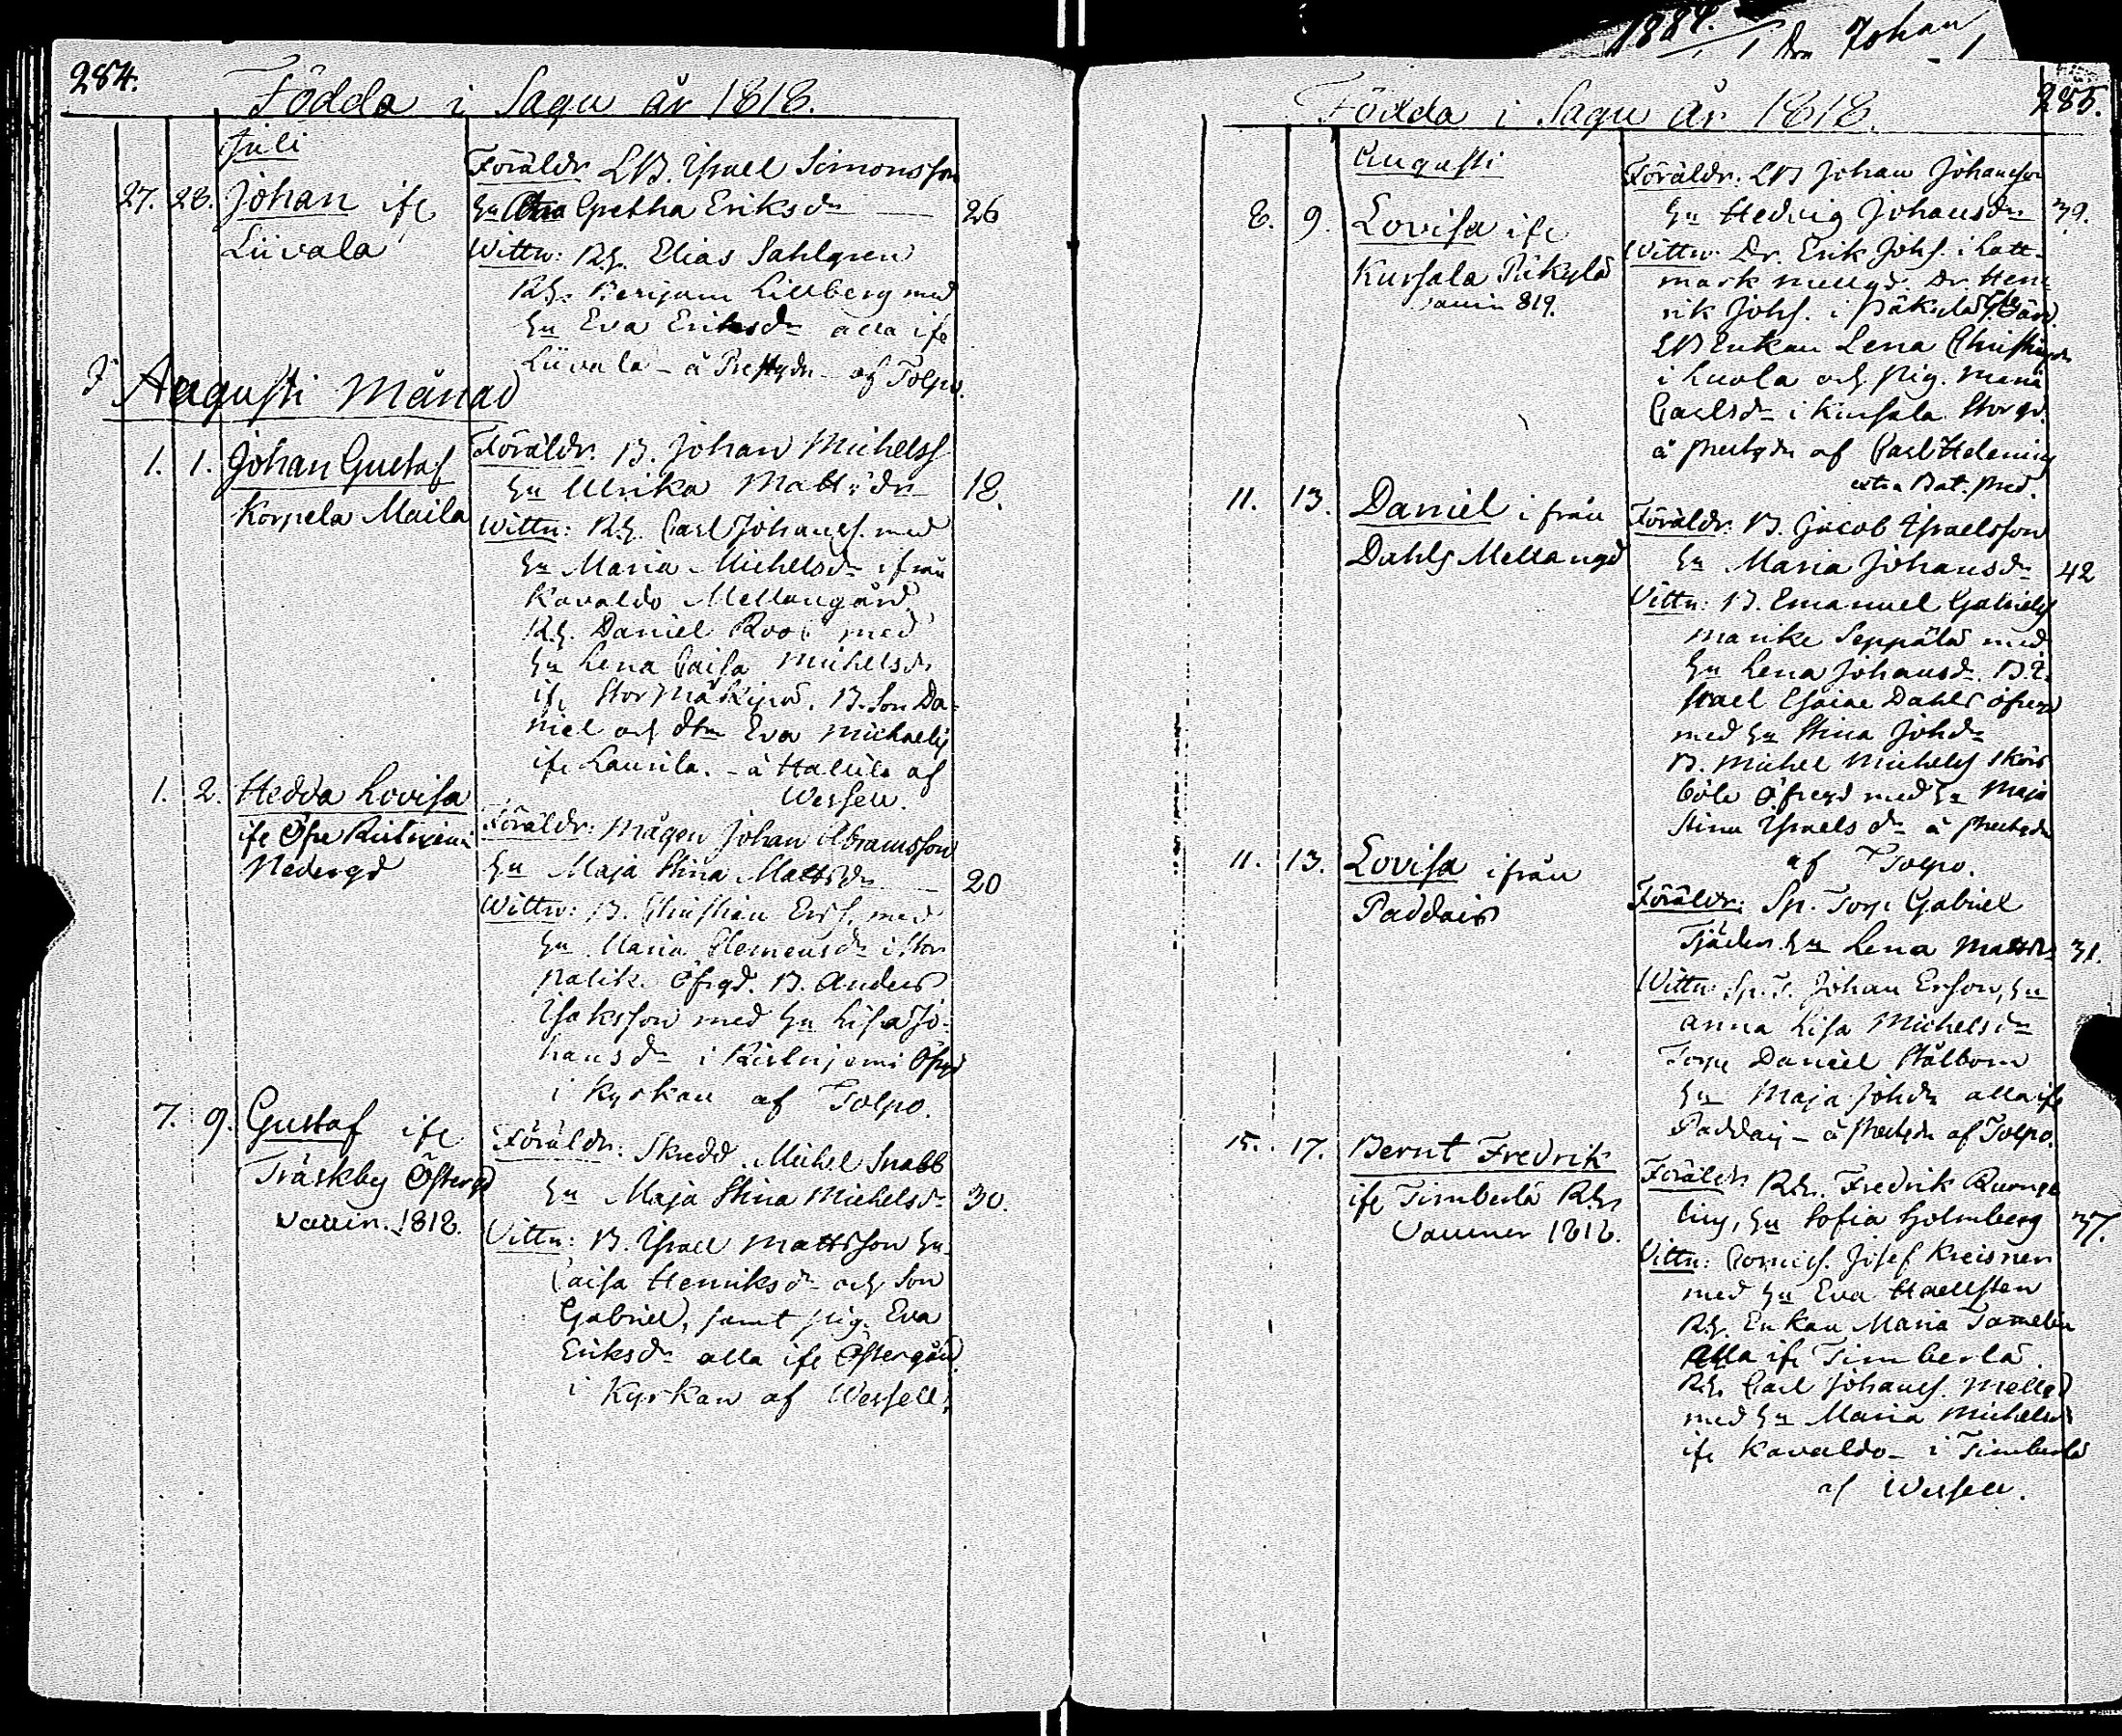 284.
Födda i Sagu år 1818.
Juli
27. 28. Johan ife
Liivala
Föräldr. LB. Israel Simonsson
Hu Gretha Eriksdr 26
Wittn: Rh. Elias Sahlgren
Rh. Benjam Lillberg med
Hu Eva Eriksdr alla ife
Liivala - å Prestgdn - af Tolpo.
I Augusti Månad
1. 1. Johan Gustaf
Korpela Maila
Föräldr. B. Johan Michelss
Hu Ulrika Mattsdr 18.
Wittn: Rh. Carl Johanss. med
Hu Maria Michelsdr ifrån
Kavaldo Mellangård
Rh. Daniel Roos med
Hu Lena Caisa Michelsdr
ife Stor Mäkipä. B. Son Da-
niel och dtrn Eva Michaelis
ife Laurila. - å Hallila af
Wessell.
1. 2. Hedda Lovisa
ife Öfre
Nedergd
Föräldr: Mågen Johan Abramsson
Hu Maja Stina Mattsdr 20
Wittn: B. Christian Ersss. med
Hu Maria Clemensdr i Stor
Palik. Öfrgd. B. Anders
Isaksson med Hu Lisa Jo-
hansdr i Ristniemi Öfrgd
i Kyrkan af Tolpo.
7. 9. Gustaf ife
Träskby Östergd
Vaccin. 1818.
Föräldr: Skredd. Michel Snabb
Hu Maja Stina Michelsdr 30.
Vittn: B. Israel Mattsson Hu
Caisa Henriksdr och Son
Gabriel, samt pig. Eva
Eriksdr alla ife Östergård
i Kyrkan af Wessell.
1884.
Johan
285.
Födda i Sagu år 1818.
Augusti
8. 9. Lovisa ife
Kursala
819.
Föräldr. LB Johan Johansson
Hu Hedvig Johansdr 39.
Wittn: Dr. Erik Johs. i Katt-
mark mellgd. Dr. Hen-
rik Johs. i
LB Enkan Lena
i Luola och pig. Maria
Carlsdr i Kursala Storgd.
å prestgdn af Carl Helenius
extra Bat. Pred.
11. 13. Daniel ifrån
Dahls Mellangd
Föräldr. B. Jacob Israelsson
Hu Maria Johansdr 42
Vittn: B. Emanuel Gabriels
Marike Seppälä med
Hu Lena Johansdr. B. I-
srael Esaiae Dahls öfregd
med Hu Stina Johdr
B. Michel Michels Skärs
böle Öfregd med Hu Maja
Stina Israelsdr å prestgdn
af Tolpo.
11. 13. Lovisa ifrån
Paddais
Föräldr: Sp. Torp Gabriel
Tjäder Hu Lena Mattsdr 31.
Wittn: Sp. T. Johan Ersson, Hu
Anna Lisa Michelsdr
Torp Daniel Stålbom
Hu Maja Johdr alla ife
Paddais - å prestgdn af Tolpo.
15. 17. Bernt Fredrik
ife Timberlä Rh.
Vacciner 1818.
Föräldr Rh. Fredrik
ling, Hu Sofia Holmberg 37.
Vittn: Josef Kreisner
med Hu Eva Haellsten
Rh. Enkan Maria Tamelin
alla ife Timberlä.
Rh. Carl Johanss. Mellgd
med Hu Maria Michelsdr
ife Kavaldo - i Timberlä
af Wessell.